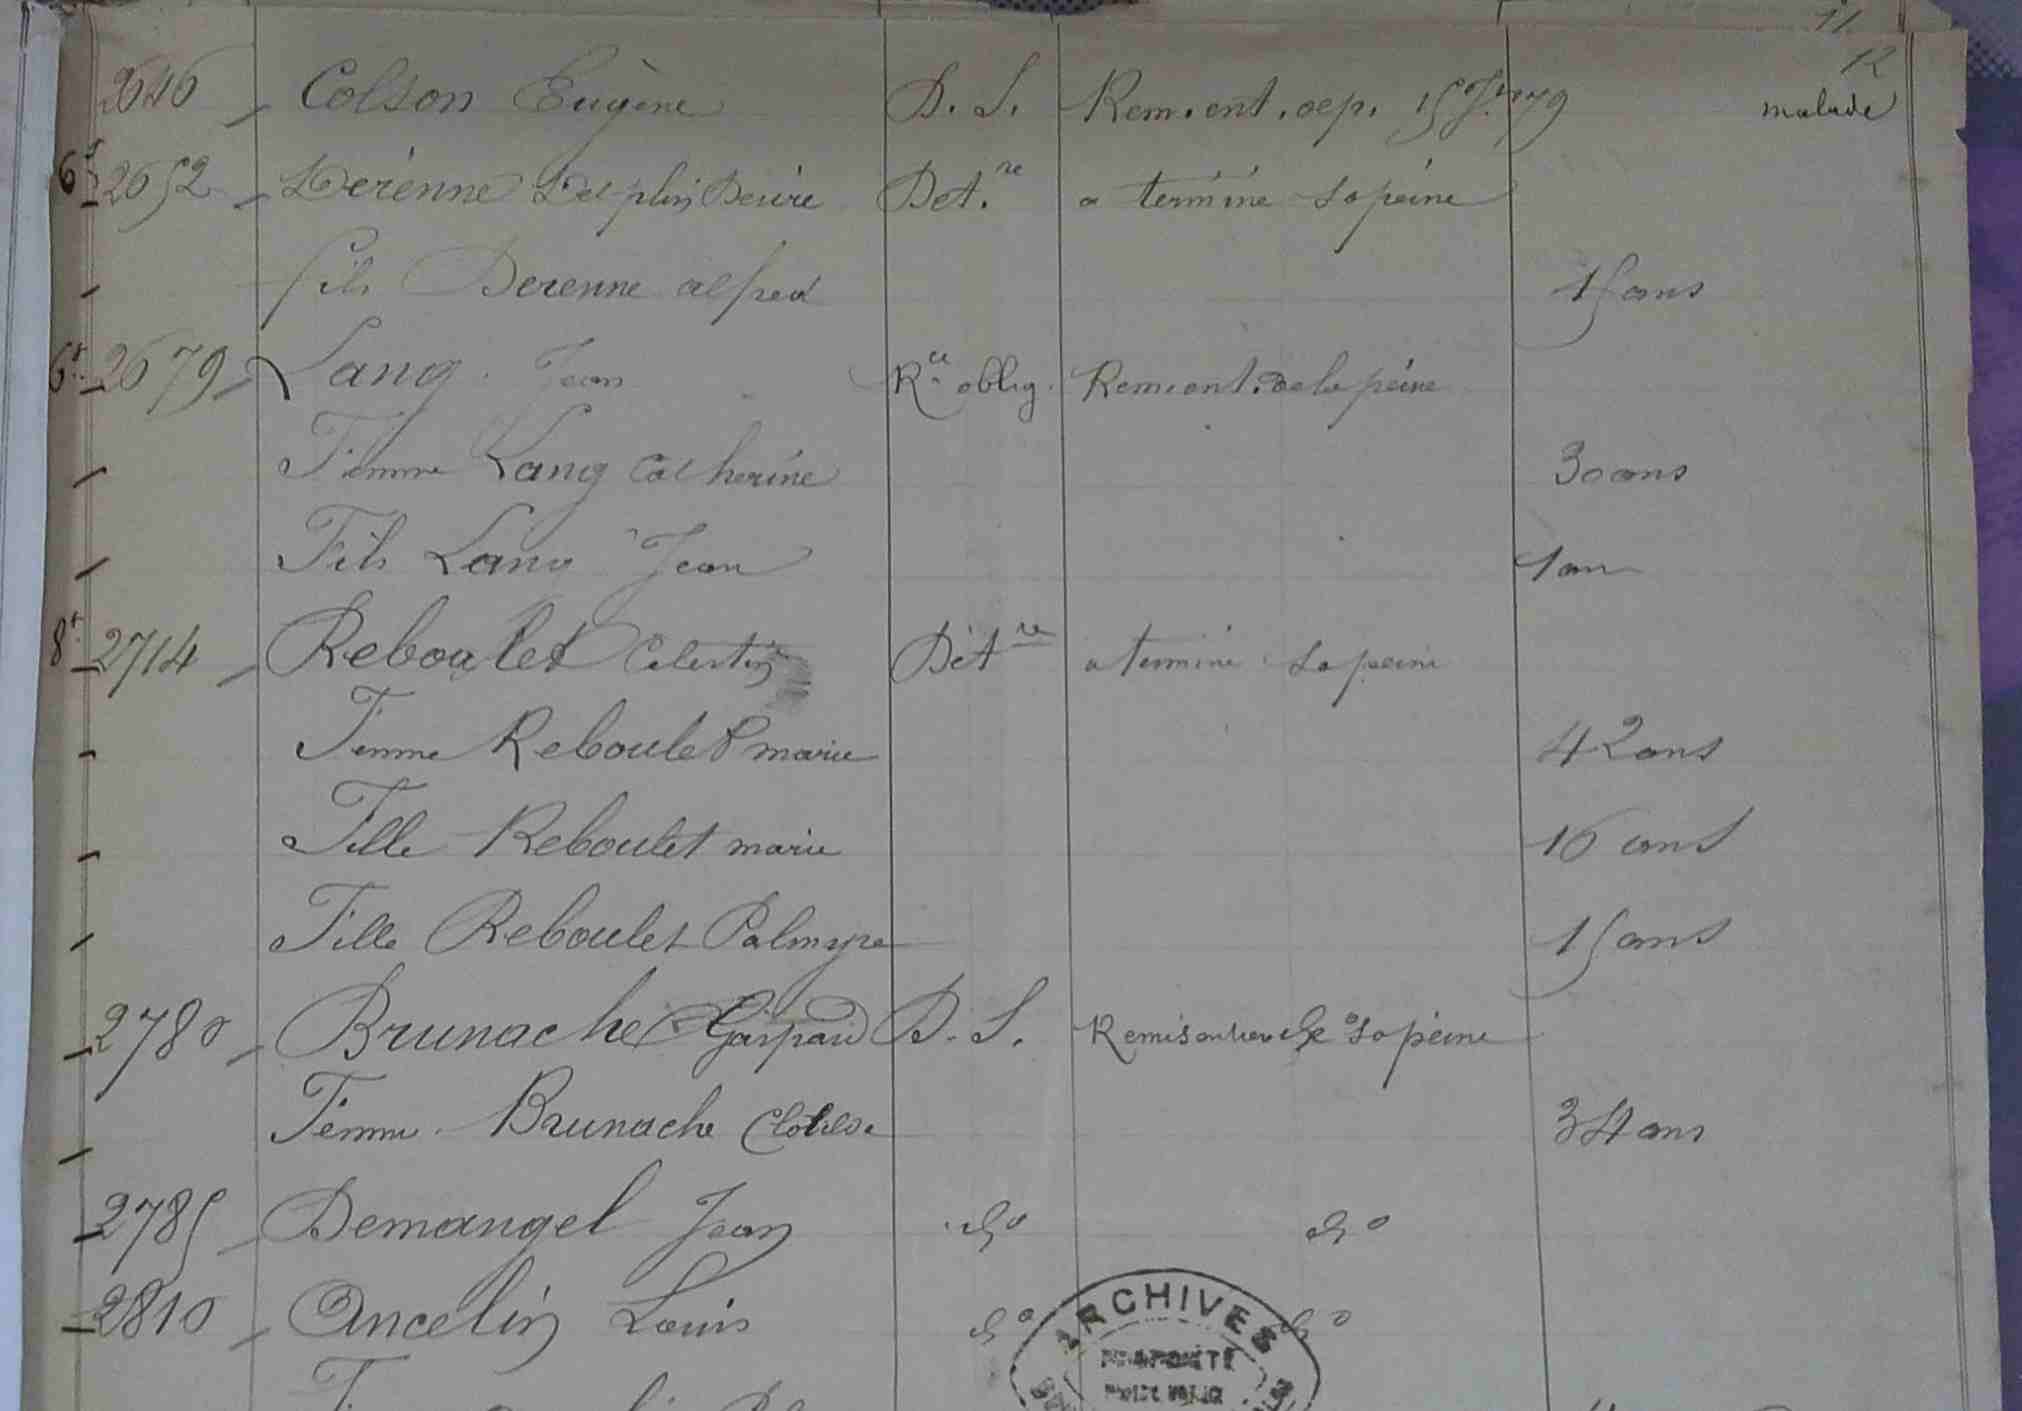 11
12
2646 Colson Eugène D. S. Rem. ent. dep. 15 Jer 79 malade
6t 2652 Dérenne Delphin Desiré Det.re a terminé sa peine
fils Derenne alfred 15 ans
6t 2679 Lang Jean Rce oblig. Rem. ent. de la peine
Femme Lang Catherine 30 ans
Fils Lang Jean 1 an
8t 2714 Reboulet Celestin Détre a terminé sa peine
Femme Reboulet marie 42 ans
Fille Reboulet marie 16 ans
Fille Reboulet Palmyre 15 ans
2780 Brunache Gaspard D. S. Remis entière de sa peine
Femme Brunache Clotilde 34 ans
2785 Demangel Jean do do
2810 Ancelin Louis do do
ARCHIVES